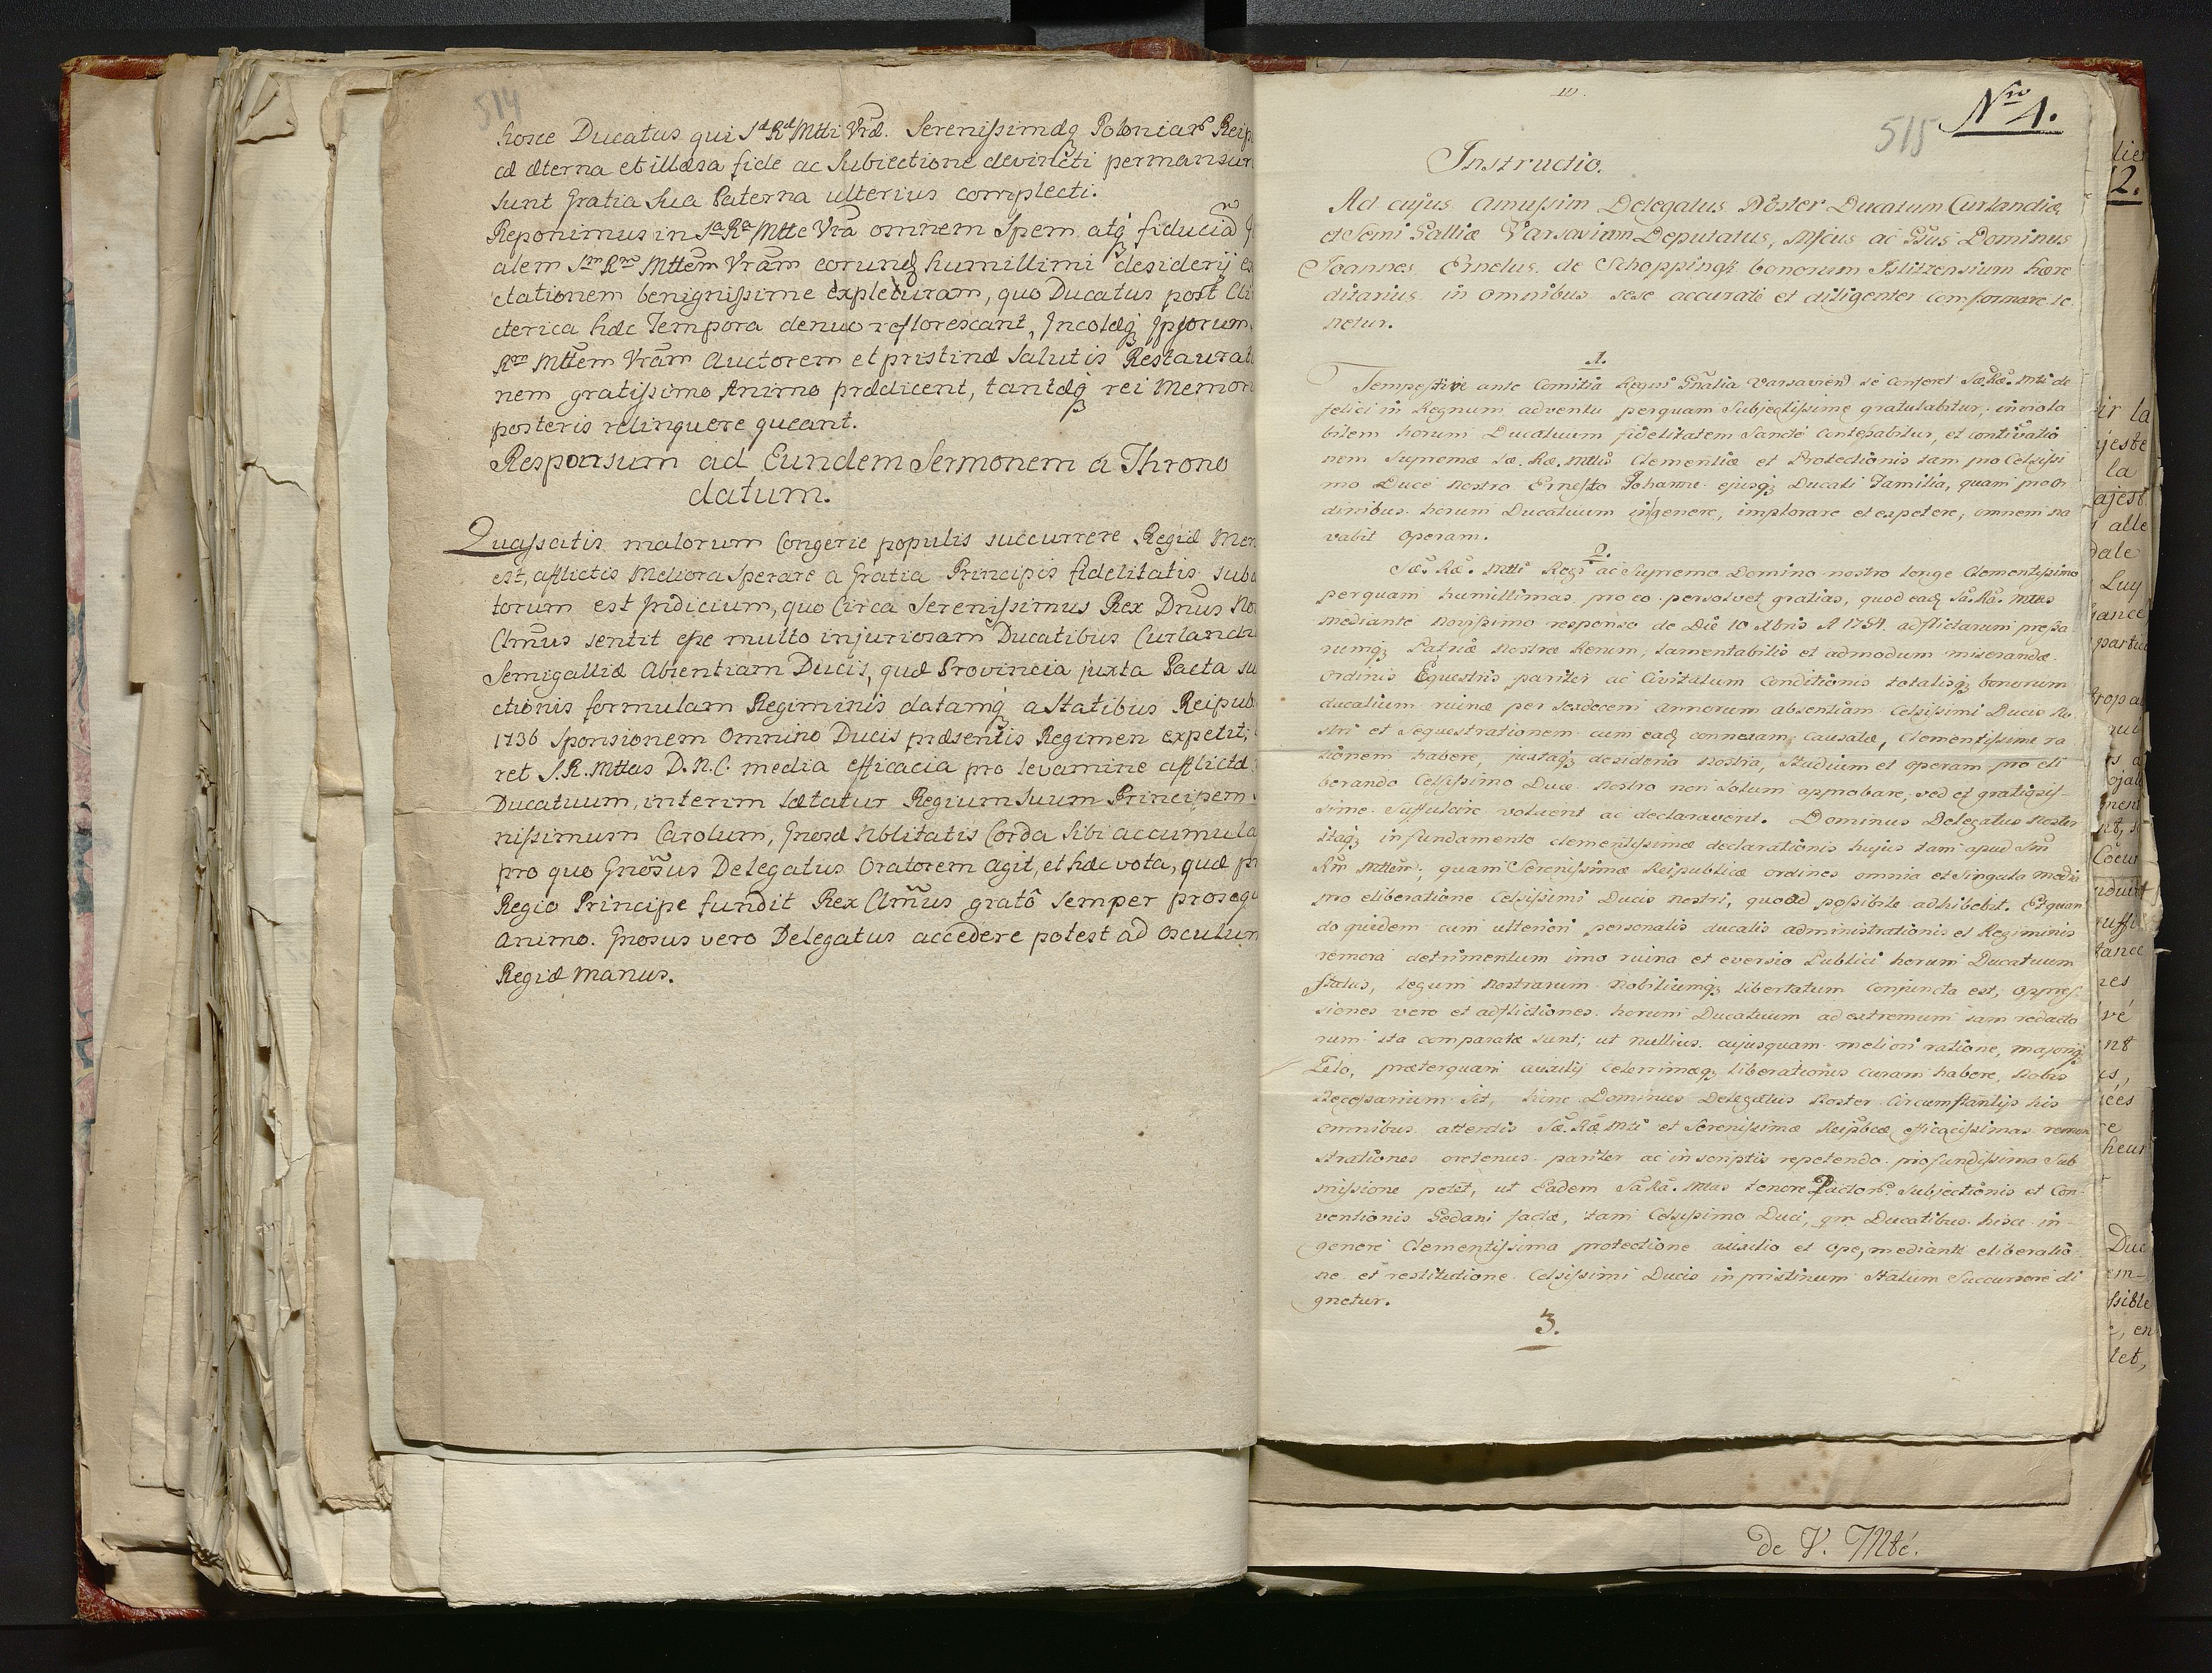 514
hosce Ducatus qui Sæ Ræ Mtti Vræ. Serenissimæq Poloniar. Reip
ad æterna et illæsa fide ac Subiectione devincti permansur
sunt Gratia Sua Paterna ulterius complecti.
Reponimus in Sa Ra Mtte Vra omnem Spem atq fiduciam
alem Sm Rm Mttem Vram eorunq humillimi desiderij
ctationem benignissime expleturam, quo Ducatus post Cli
cterica hæc Tempora denuo reflorescant, Incolæq Ipsorum
Rm Mttem Vram Auctorem et pristinæ Salutis Restaurat
nem gratissimo Animo prædicent, tantæq rei Memori
posteris relinquere queant.
Responsum ad Eundem Sermonem a Throno
datum.
Quassatis malorum Congerie populis succurrere Regiæ Men
est, afflictis Meliora Sperare a Gratia Principis fidelitatis sub
torum est Judicium, quo Circa Serenissimus Rex Dnus No
Clmus sentit esse multo injuriosam Ducatibus Curlandi
Semigalliæ Absentiam Ducis, quæ Provincia juxta Pacta su
ctionis formulam Regiminis datamq a Statibus Reipub
1736 Sponsionem Omnino Ducis præsentis Regimen expetit;
ret S. R. Mttas D. N. C. media efficacia pro levamine afflictæ
Ducatuum, interim lætatur Regium Suum Principem
nissimum Carolum, Gnosæ Nblitatis Corda Sibi accumula
pro quo Gnosus Delegatus Oratorem agit, et hæc vota, quæ pr
Regio Principe fundit Rex Clmus grato semper prosequ
Animo. Gnosus vero Delegatus accedere potest ad osculum
Regiæ manus.
515
Nro 1.
Instructio.
Ad cujus amussim Delegatus Noster Ducatum Curlandiæ
et Semi Galliæ Varsaviam Deputatus, Mfcus ac Gsus Dominus
Joannes Ernestus de Schopping bonorum Islitzensium hære
ditarius in omnibus sese accurate et diligenter conformare te
netur.
1.
Tempestive ante Comitia Regni Gnalia Varsavien se conferet Sæ. Ræ. Mtti de
felici in Regnum adventu perquam Subjectissime gratulabitur, inviola
bilem horum Ducatuum fidelitatem Sancte contestabitur, et continuatio
nem Supremæ Sæ. Ræ. Mttis Clementiæ et Protectionis tam pro Celsissi
mo Duce nostro Ernesto Johanne ejusq Ducali Familia, quam pro or
dinibus horum Ducatuum in genere, implorare et expetere, omnem na
vabit operam.
2.
Sæ. Ræ. Mtti Regi ac Supremo Domino nostro longe Clementissimo
perquam humillimas pro eo persolvet gratias, quod eadq Sa. Ra. Mttas
mediante novissimo responso de Die 10 Xbris A 1754. adflictarum pressa
rumq Patriæ nostræ Rerum, lamentabilis et admodum miserandæ
ordinis Equestris pariter ac Civitatum conditionis totalisq bonorum
ducalium ruinæ per sexdecem annorum absentiam Celsissimi Ducis No
stri et Sequestrationem cum eadq connexam causatæ, Clementissime ra
tionem habere, justaq desideria nostra, Studium et operam pro eli
berando Celsissimo Duce nostro non solum approbare, sed et gratiosis
sime suffulcire voluerit ac declaraverit. Dominus Delegatus noster
itaq in fundamento clementissimæ declarationis hujus tam apud Sm
Rm Mttem, quam Serenissimæ Reipublicæ ordines omnia et Singula media
pro eliberatione Celsissimi Ducis nostri, quoad possibile adhibebit. Et quan
do quidem cum ulteriori personalis ducalis administrationis et Regiminis
remora detrimentum imo ruina et eversio Publici horum Ducatuum
Status, Legum nostrarum nobiliumq libertatum conjuncta est, oppres
siones vero et adflictiones horum Ducatuum ad extremum jam redacto
rum ita comparatæ sunt, ut nullius cujusquam meliori ratione, majoriq
Zelo, præterquam auxilij celerrimæq liberationis curam habere, nobis
Necessarium sit, hinc Dominus Delegatus Noster circumstantijs his
omnibus attentis Sæ. Ræ Mtti et Serenissimæ Reipblcæ efficacissimas remon
strationes oretenus pariter ac in scriptis repetendo profundissima Sub
missione petet, ut Eadem Sa Ra. Mttas tenore Pactor. Subjectionis et Con
ventionis Gedani factæ, tam Celsissimo Duci, qm Ducatibus hisce in
genere Clementissima protectione auxilio et ope, mediante eliberatio
ne et restitutione Celsissimi Ducis in pristinum Statum Succurrere di
gnetur.
3.
de V. Mté.